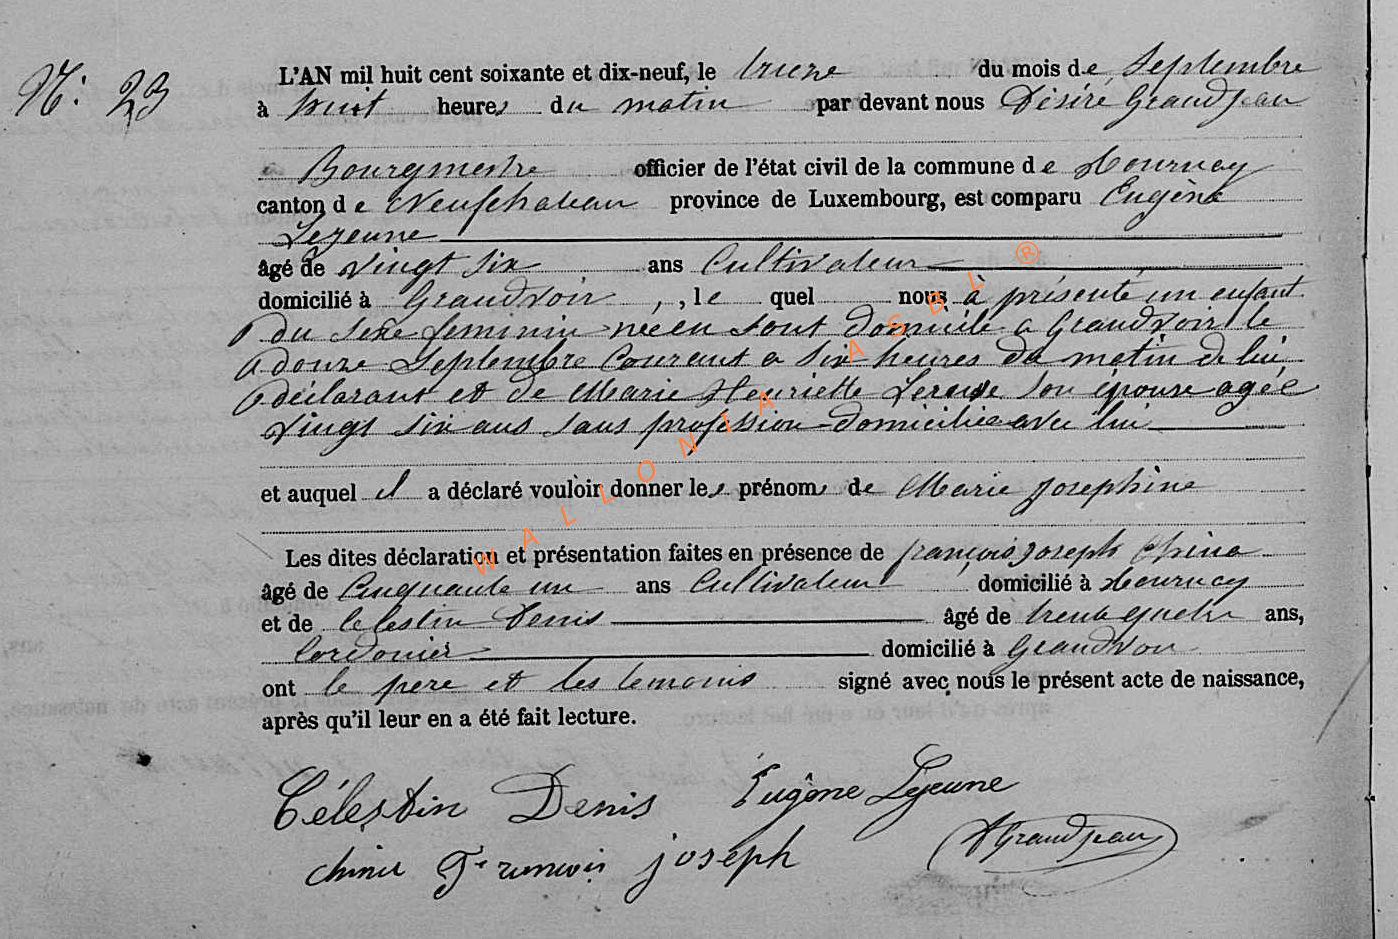 N: 23
L'AN mil huit cent soixante et dix-neuf, le treize du mois de Septembre
à huit heures du matin par devant nous Désiré Grandjean
Bourgmestre officier de l'état civil de la commune de Tournay
canton de Neufchateau province de Luxembourg, est comparu Eugène
Lejeune
âgé de vingt six ans Cultivateur
domicilié à Grandvoir, le quel nous à présenté un enfant
du sexe feminin née en sont domicile a Grandvoir le
douze Septembre Courant a six heures du matin de lui
déclarant et de Marie Henriette son épouse agée
vingt six ans sans profession domiciliée avec lui
et auquel il a déclaré vouloir donner les prénoms de Marie Josephine
Les dites déclaration et présentation faites en présence de françois joseph Chine
âgé de Cinquante un ans Cultivateur domicilié à Tournay
et de Celestin Denis âgé de trente quatre ans,
Cordonier domicilié à Grandvoir
ont le pere et les temoins signé avec nous le présent acte de naissance,
après qu'il leur en a été fait lecture.
Célestin Denis Eugène Lejeune
joseph DGrandjean
WALLONIA ASBL ®